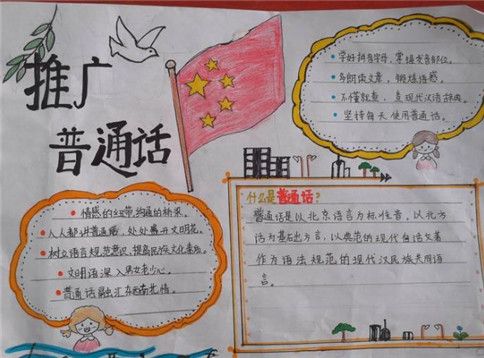 推广
普通话
学好拼音字母，掌握发音部位。
多朗读文章，锻炼语感。
不懂就查，查现代汉语词典。
坚持每天使用普通话。
情感的纽带，沟通的桥梁。
人人都讲普通话，处处盛开文明花。
树立语言规范意识，提高民族文化素质。
文明语深入男女老少心，
普通话融汇东西南北情。
什么是普通话？
普通话是以北京语音为标准音，以北方
话为基础方言，以典范的现代白话文著
作为语法规范的现代汉民族共同语
言。